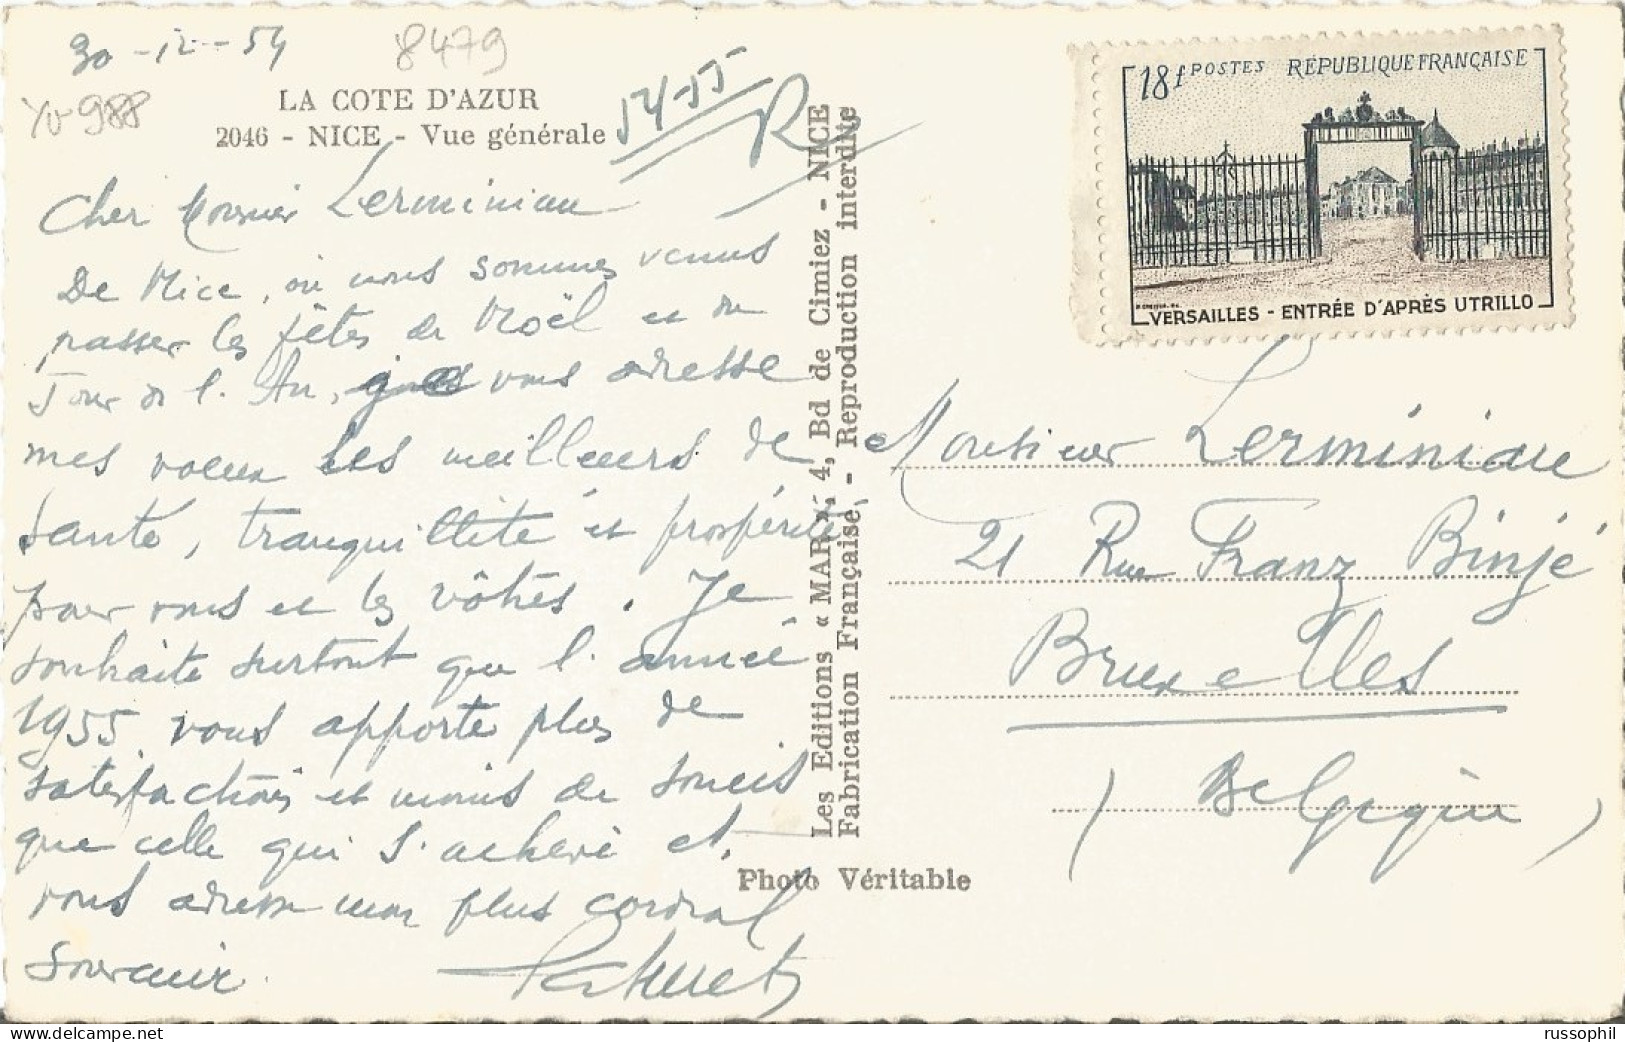 30-12-54
8479
Yv 988
LA COTE D'AZUR
2046 - NICE - Vue générale
54-55
R
Cher Monsieur Lerminiau
De Nice, où nous sommes venus
passer les fêtes de Noël et du
Jour de l'An, vous adresse
mes voeux les meilleurs de
santé, tranquillité et prospérité
pour vous et les vôtres. Je
souhaite surtout que l'année
1955 vous apporte plus de
satisfactions et moins de soucis
que celle qui s'achève et
vous adresse mon plus cordial
souvenir.
Les Editions « MAR », 4, Bd de Cimiez - NICE
Fabrication Française, - Reproduction interdite
Photo Véritable
18f POSTES RÉPUBLIQUE FRANÇAISE
VERSAILLES - ENTRÉE D'APRÈS UTRILLO
Monsieur Lerminiau
21 Rue Franz Binjé
Bruxelles
(Belgique)
russophil@delcampe.net